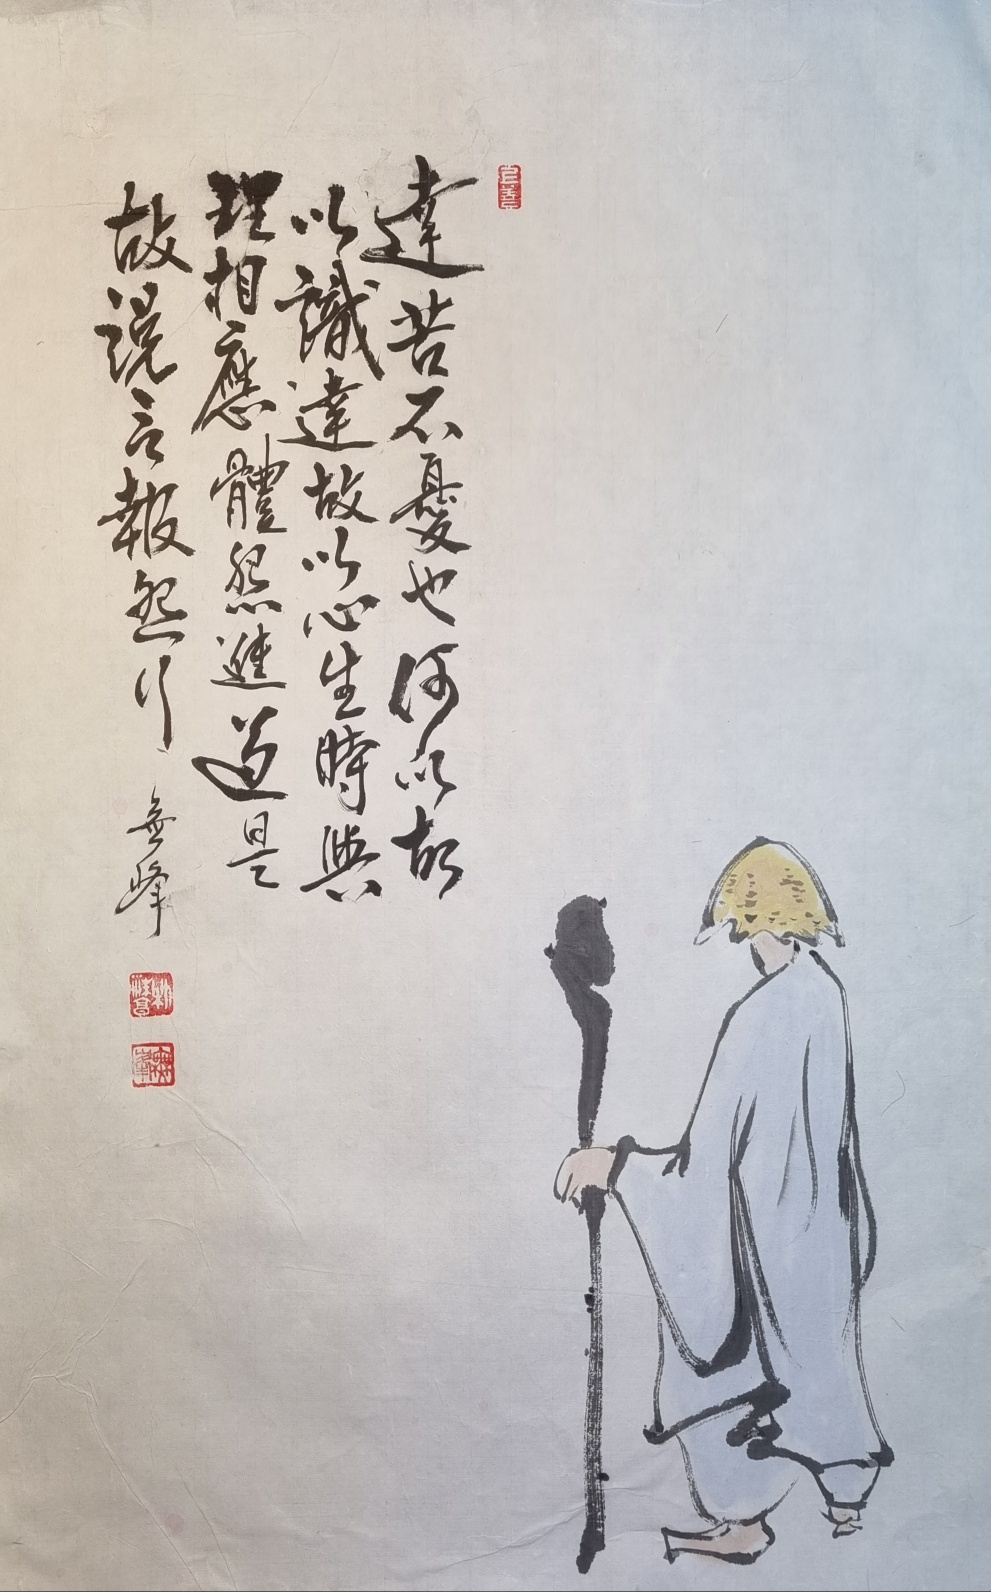 達苦不憂也何以故
以識達故以心生時與
理相應體怨進道是
故説言報怨行
無峰
無峯